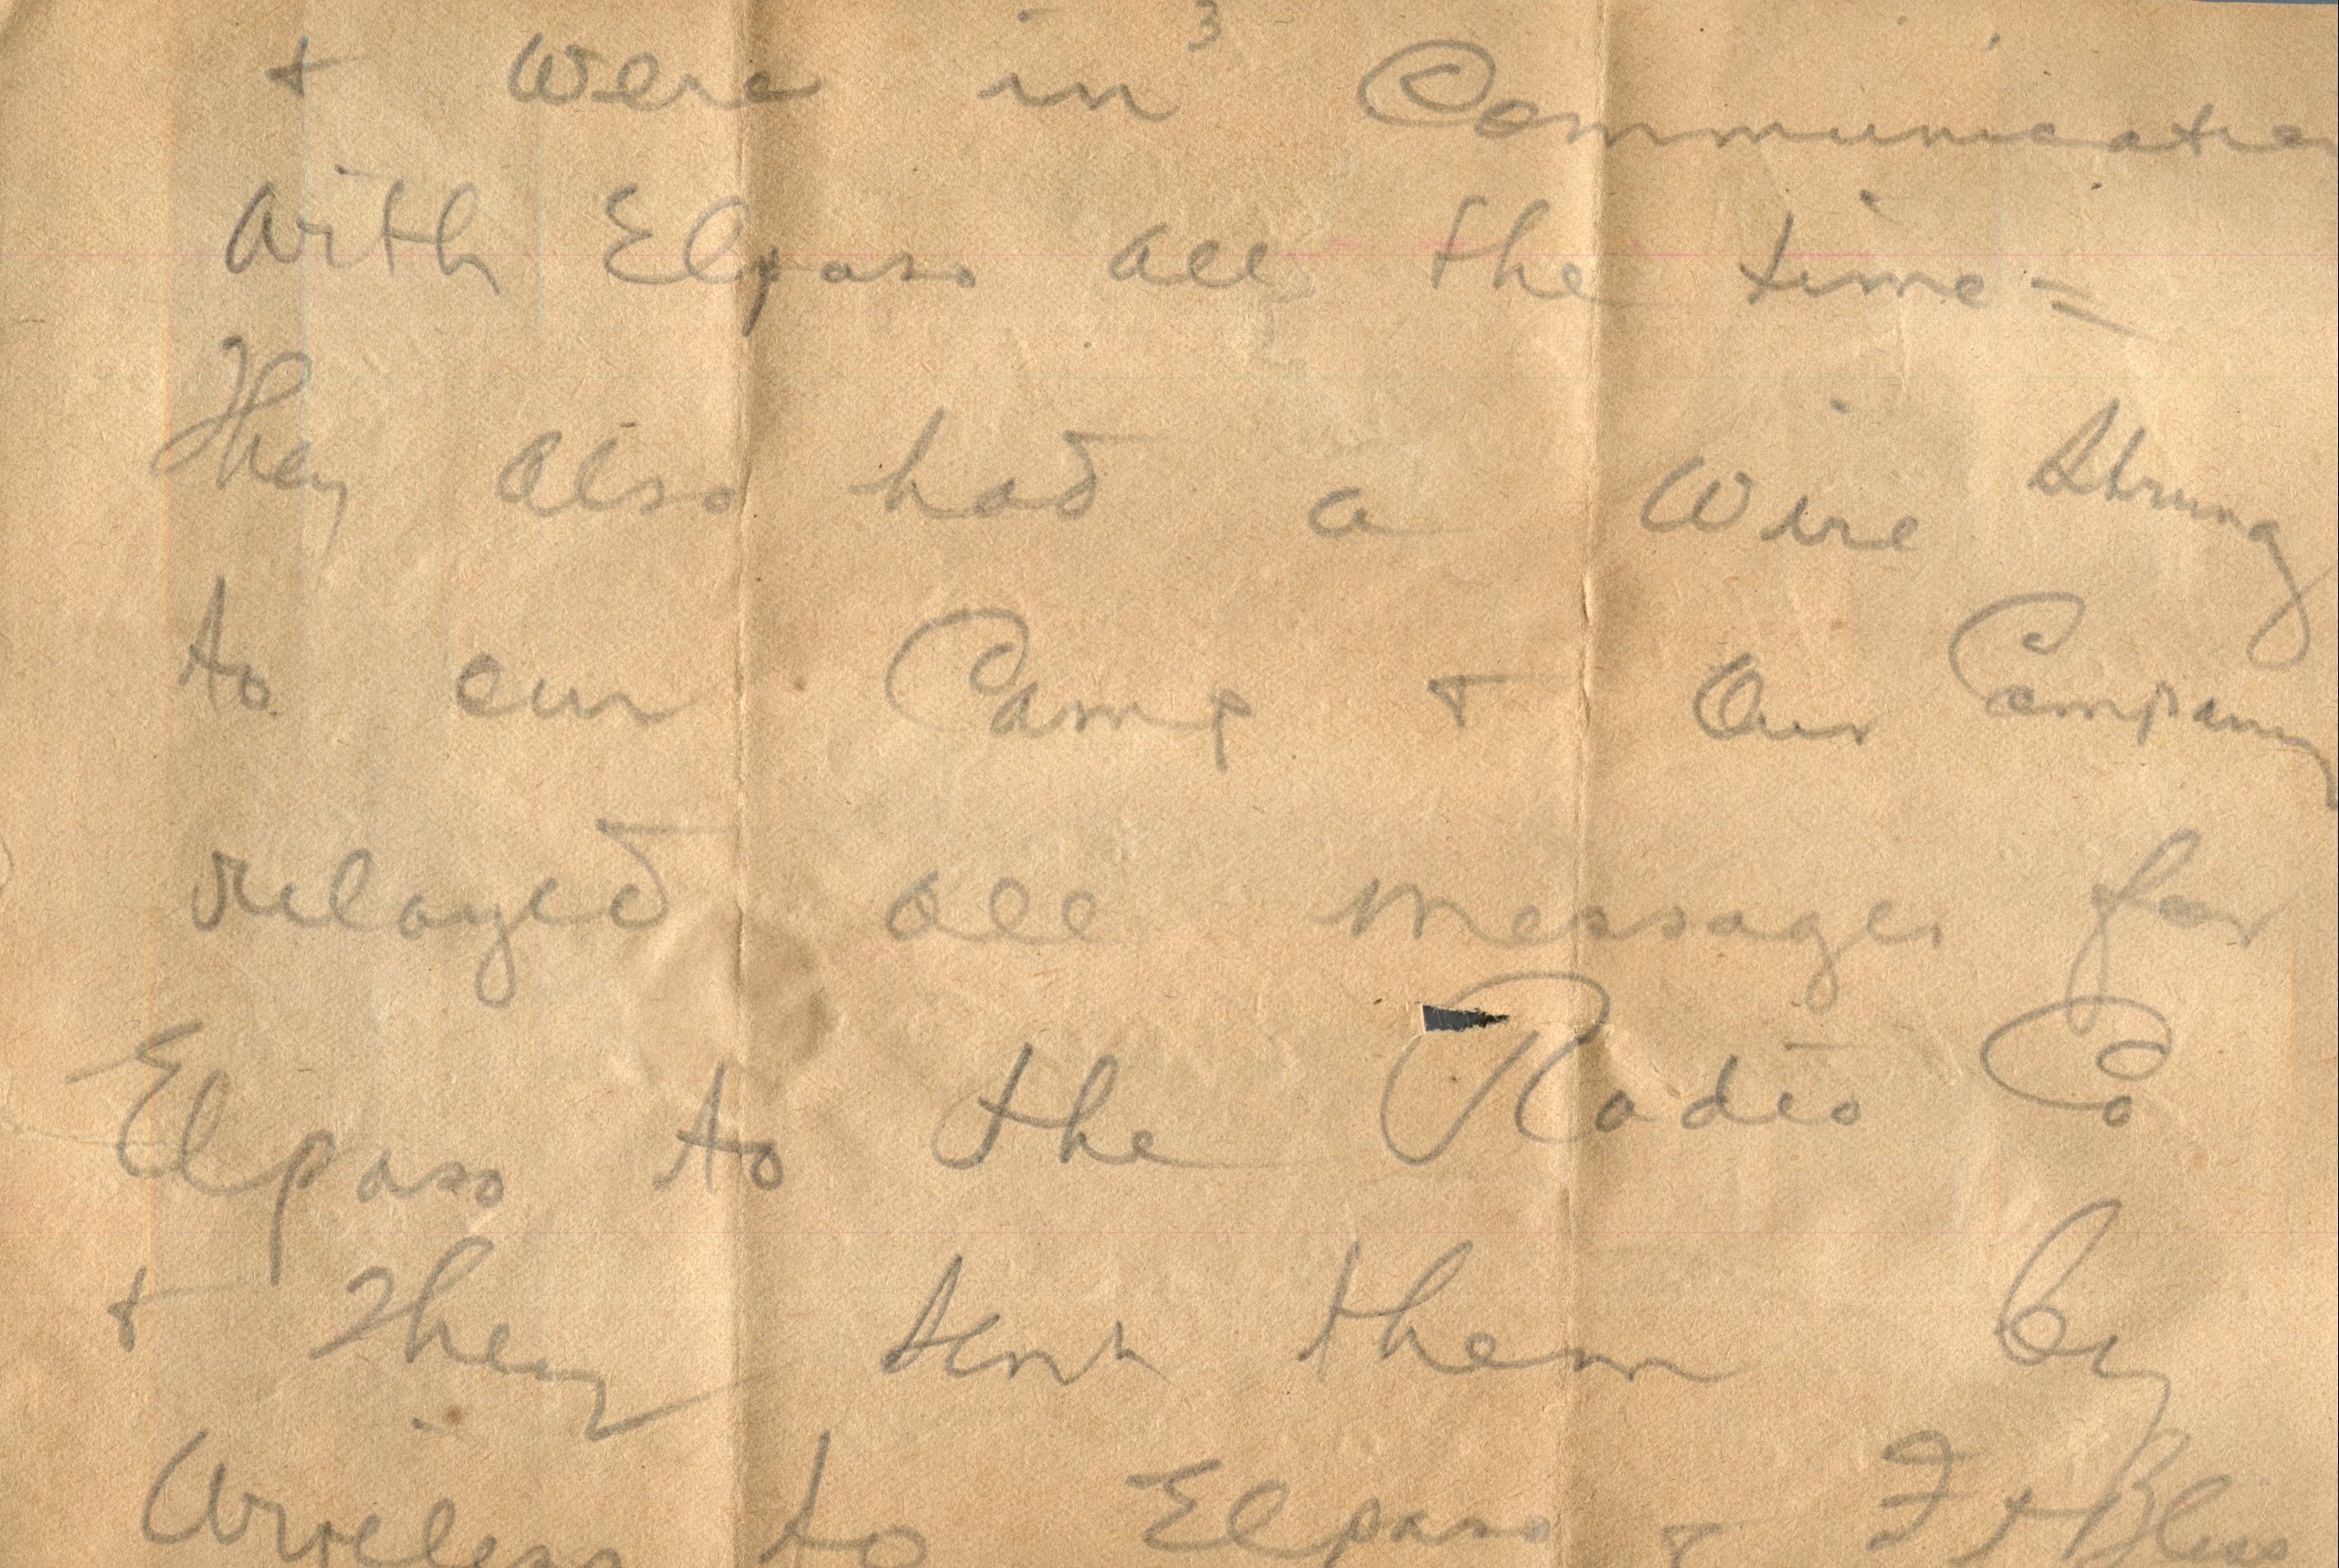 3
+ were in Communication
with Elpaso all the time =
They also had a wire strung
to our Camp + our Company
relayed all messages for
Elpaso to the Radio Co
+ they sent them by
Wireless to Elpaso + Ft Bliss